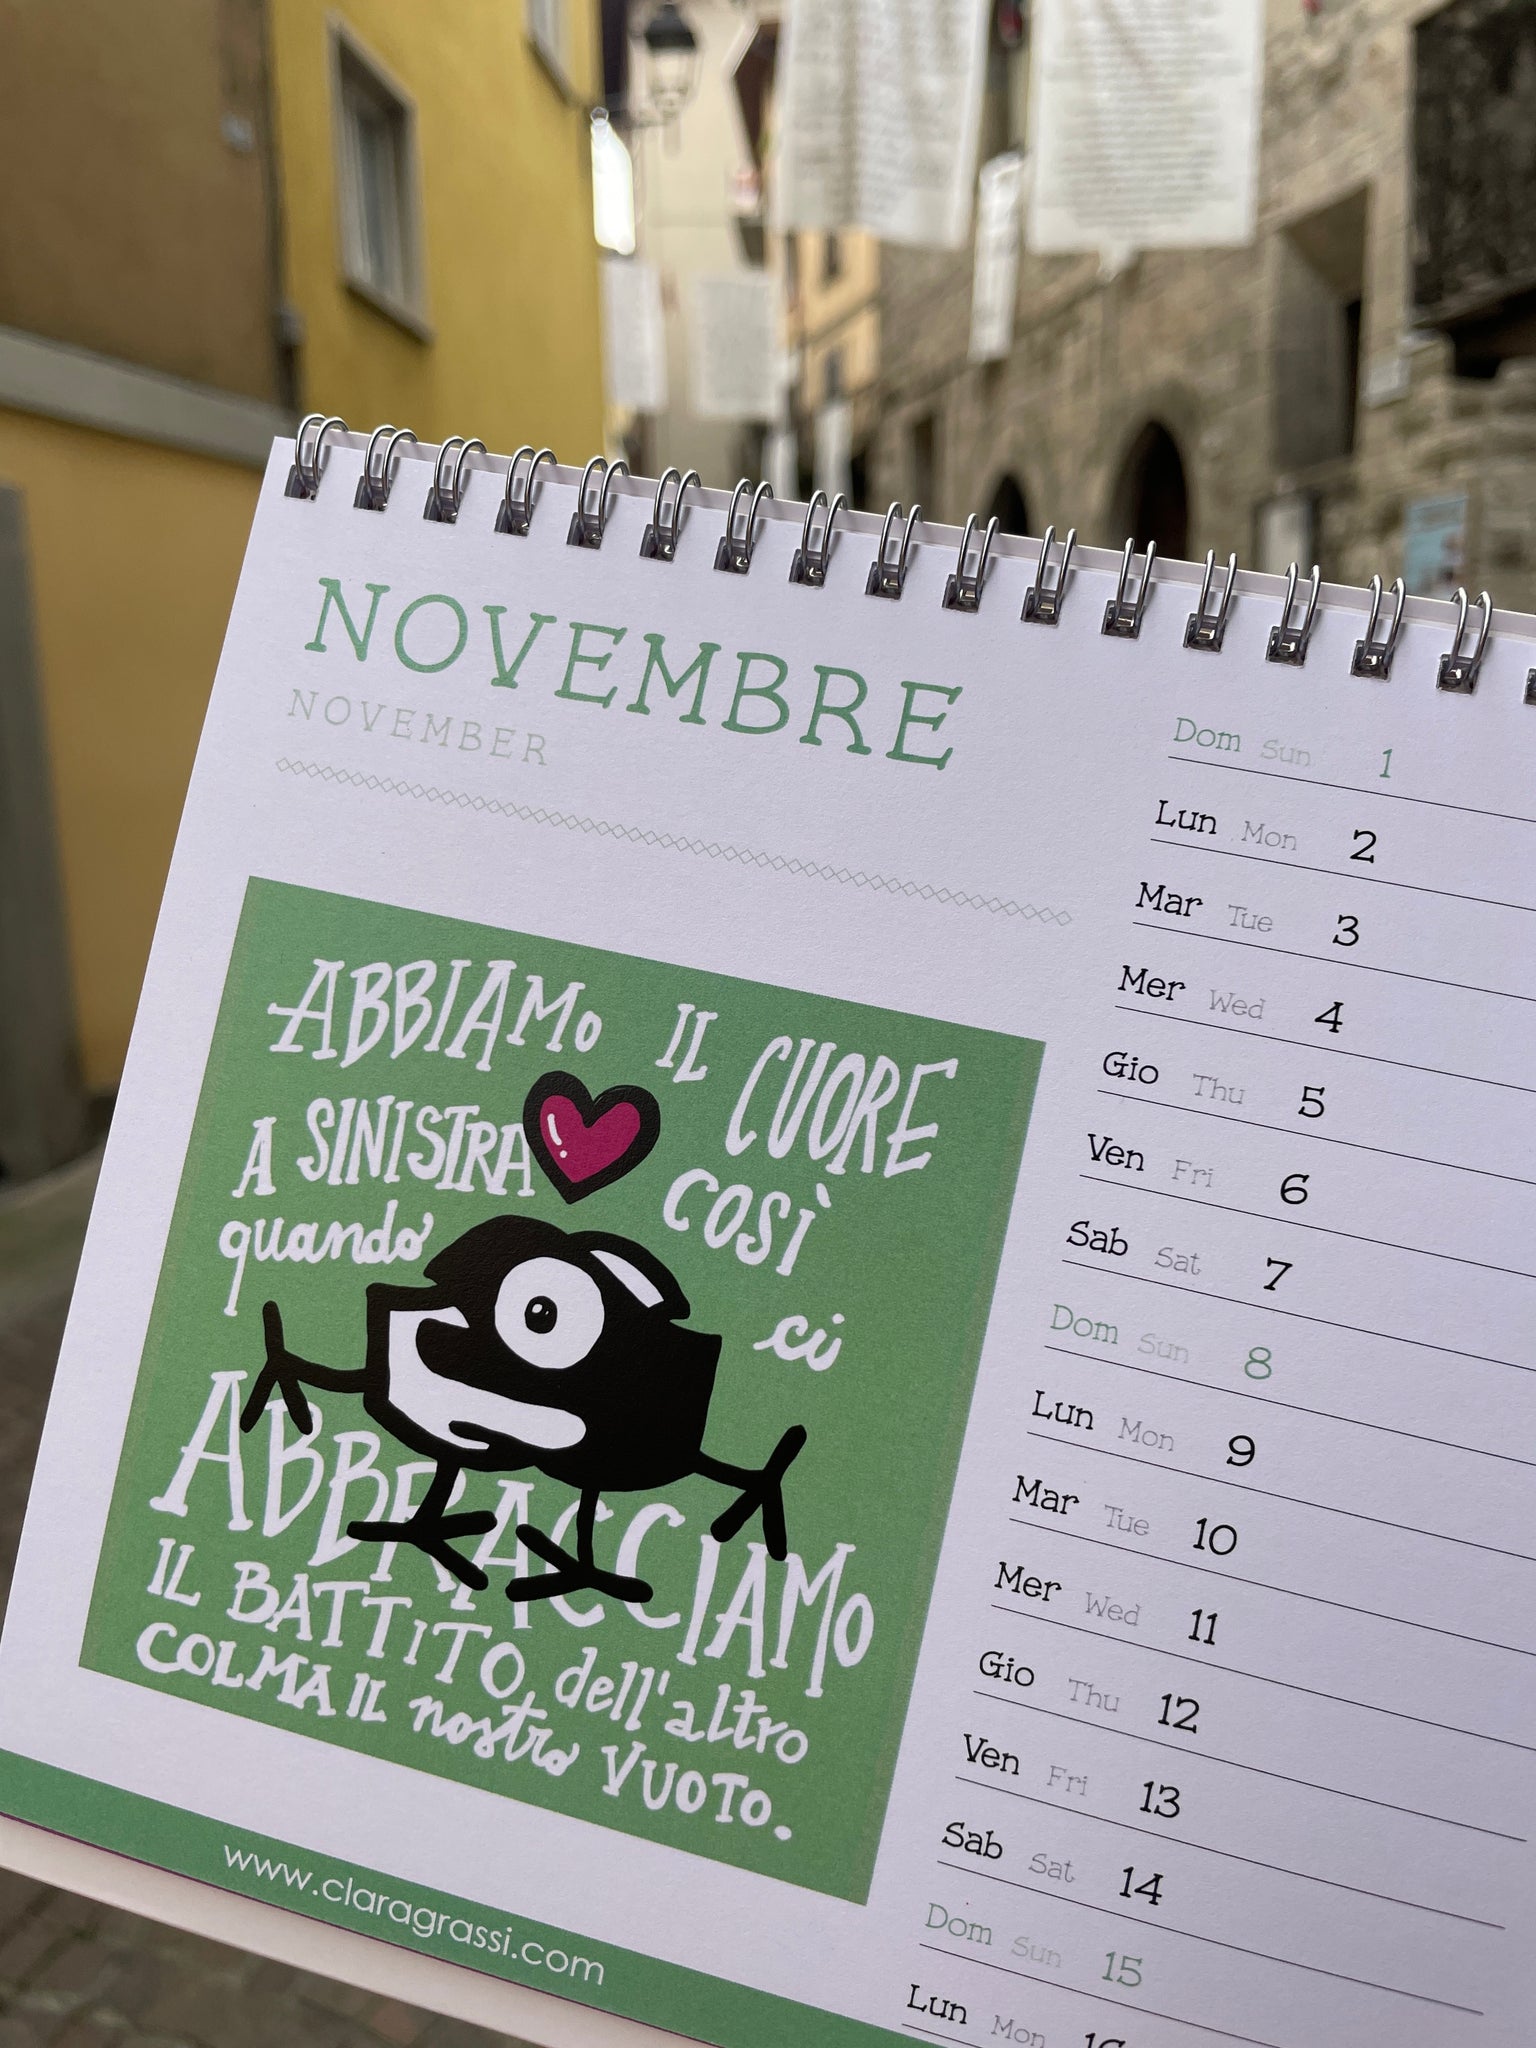 NOVEMBRE
NOVEMBER
ABBIAMO IL CUORE
A SINISTRA COSÌ
quando ci
ABBRACCIAMO
IL BATTITO dell'altro
COLMA IL nostro VUOTO.
www.claragrassi.com
Dom Sun 1
Lun Mon 2
Mar Tue 3
Mer Wed 4
Gio Thu 5
Ven Fri 6
Sab Sat 7
Dom Sun 8
Lun Mon 9
Mar Tue 10
Mer Wed 11
Gio Thu 12
Ven Fri 13
Sab Sat 14
Dom Sun 15
Lun Mon 16